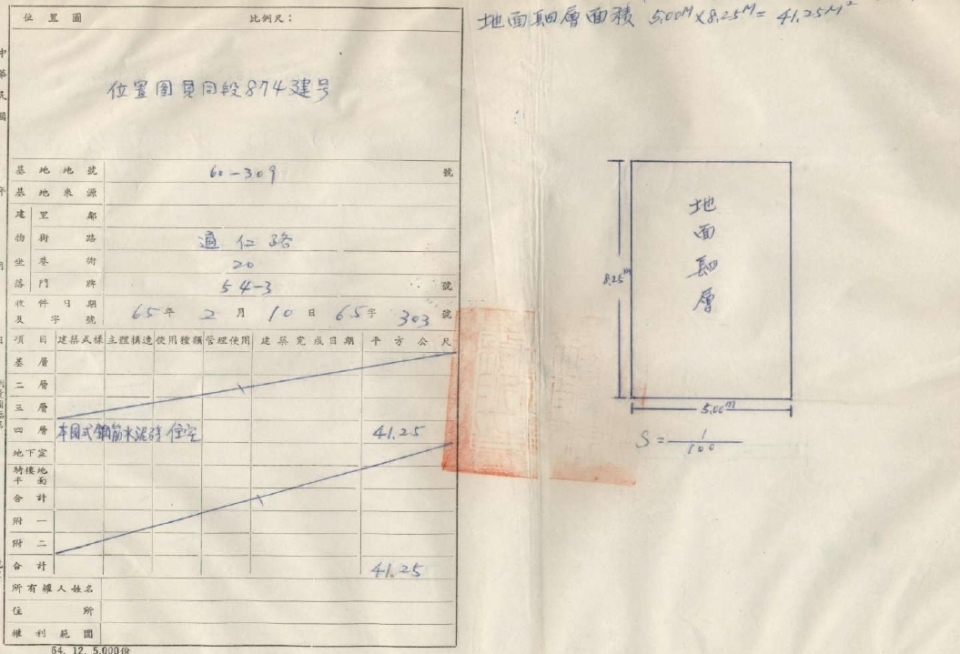 位置圖 比例尺：
地面四層面積 5.00M×8.25M= 41.25M²
位置圖見同段874建号
基地地號 60-309 號
基地來源
建 里 鄰
物 街 路 通仁路
坐 巷 衖 20
落 門 牌 54-3 號
收件日期及字號 65年 2月 10日 65字 303號
項目 建築式樣 主體構造 使用種類 管理使用 建築完成日期 平方公尺
基層
二層
三層
四層 本国式 鋼筋水泥磚 住宅 41.25
地下室
騎樓地平面
合計
附一
附二
合計 41.25
所有權人姓名
住所
權利範圍
64. 12. 5,000份
地面四層
8.25M
5.00M
S=1/100